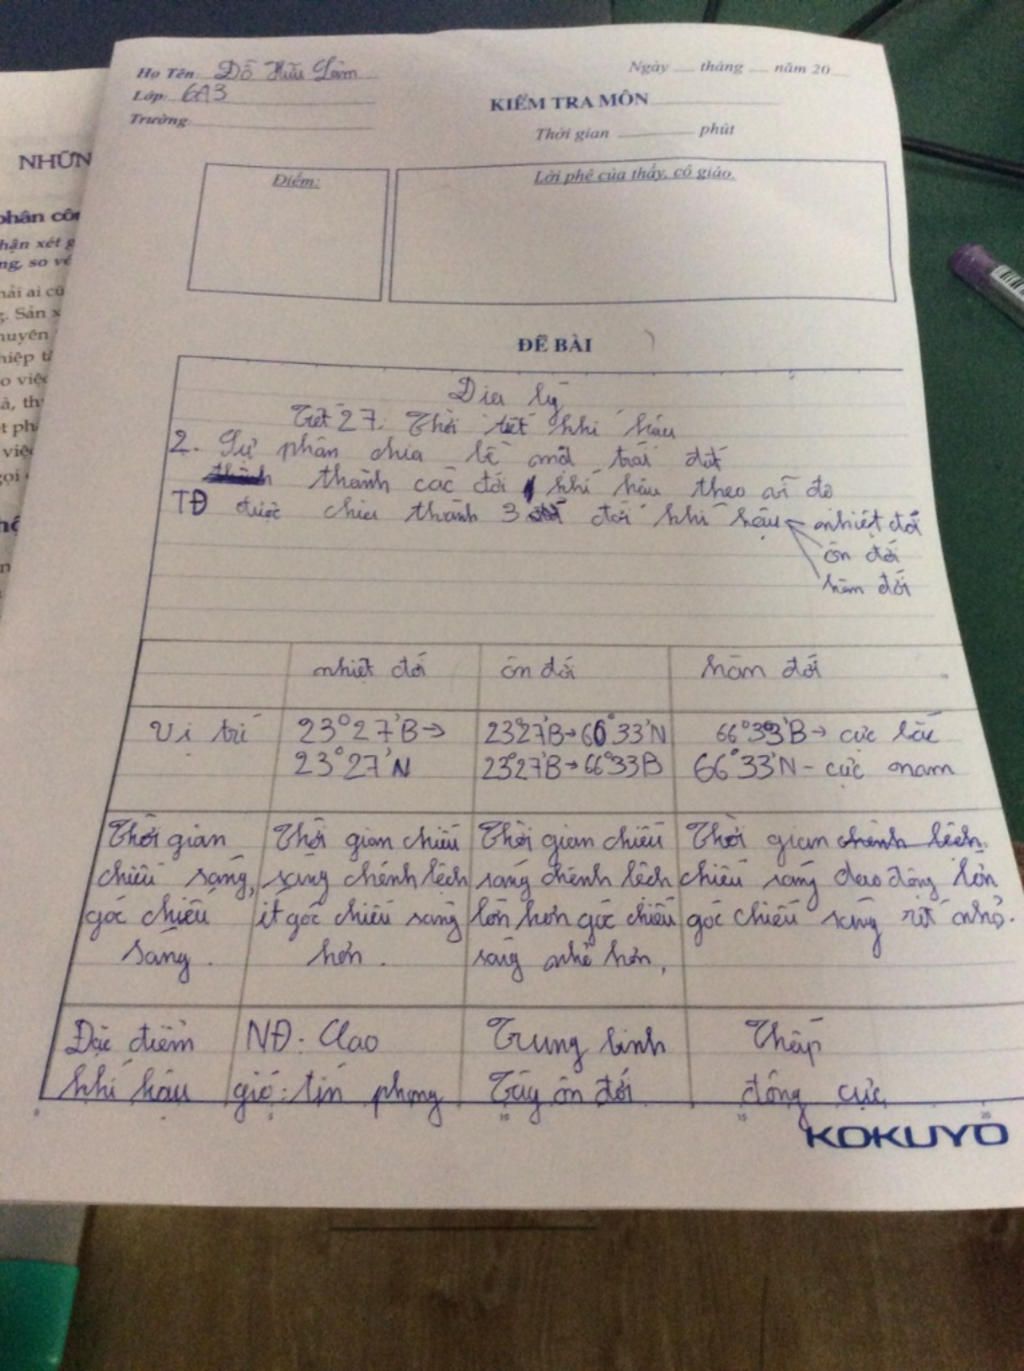 NHỮN
phân côn
hận xét g
ng, so vé
hải ai cũ
g. Sản x
huyên
hiệp t
o việc
à, th
t ph
việc
gọi
Họ Tên: Đỗ Hữu Lâm
Lớp: 6A3
Trường
Ngày ... tháng ... năm 20
KIỂM TRA MÔN
Thời gian ... phút
Điểm:
Lời phê của thầy, cô giáo.
ĐỀ BÀI
Địa lý
Tiết 27: Thời tiết khí hậu
2. Sự phân chia bề mặt trái đất
thành các đới khí hậu theo vĩ độ
TĐ được chia thành 3 đới khí hậu nhiệt đới
ôn đới
hàn đới
nhiệt đới ôn đới hàn đới
Vị trí 23°27'B→ 23°27'B→66°33'N 66°33'B→ cực bắc
23°27'N 23°27'B→66°33B 66°33'N - cực nam
Thời gian Thời gian chiếu Thời gian chiếu Thời gian chênh lệch
chiếu sáng, sáng chênh lệch sáng chênh lệch chiếu sáng dao động lớn
góc chiếu ít góc chiếu sáng lớn hơn góc chiếu góc chiếu sáng rất nhỏ.
sáng. hơn. sáng nhỏ hơn,
Đặc điểm NĐ: Cao Trung bình Thấp
khí hậu gió: tín phong Tây ôn đới đông cực
KOKUYO